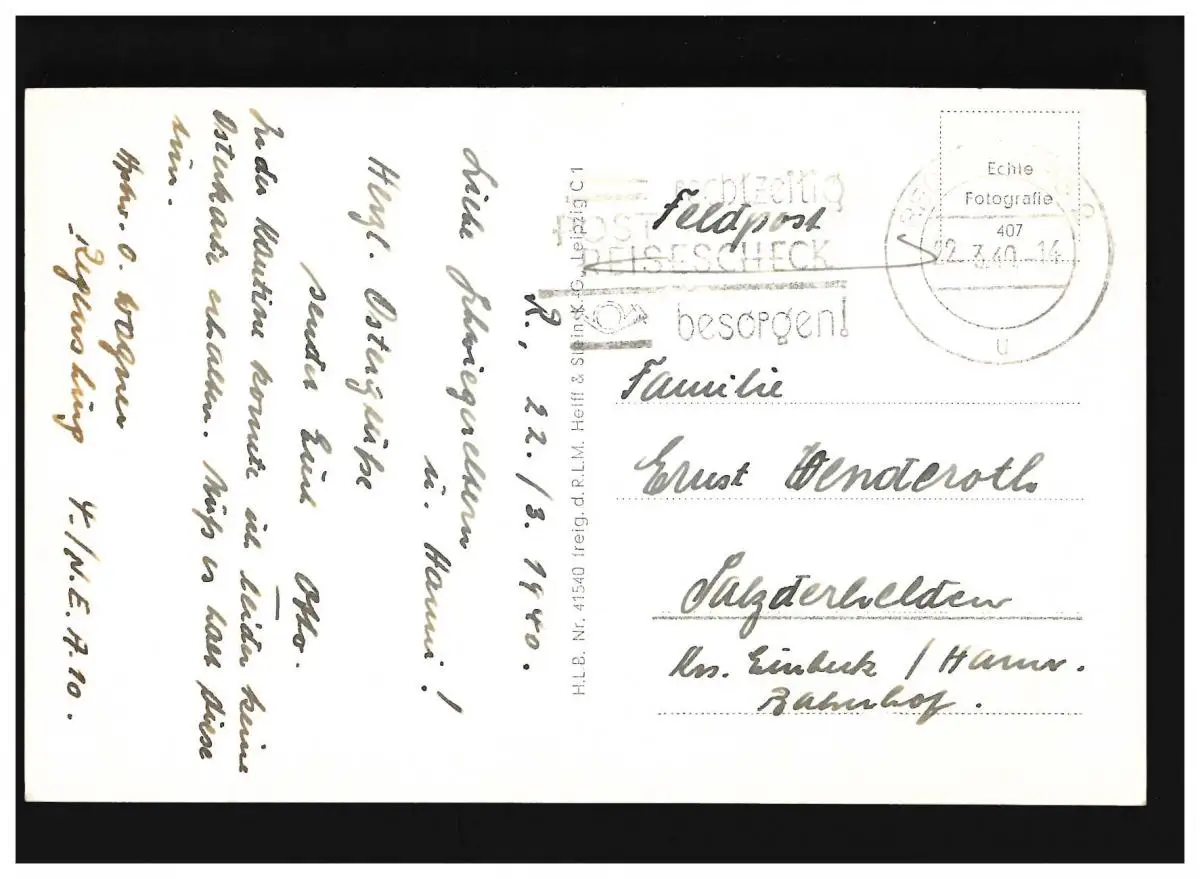 R., 22./3. 1940.
Liebe Schwiegereltern
u. Hanni!
Herzl. Ostergrüße
sendet Euch
Otto.
In der Kantine konnte ich leider keine
Osterkarte erhalten. Muß es halt diese
tun.
O. Wagner
Regensburg 4./N.E.A.10.
H.L.B. Nr. 41540 freig. d. R.L.M. Helff & Stein K.G., Leipzig C 1
Echte
Fotografie
407
rechtzeitig
POST
REISESCHECK
besorgen!
22.3.40-14
u
Feldpost
Familie
Ernst Wenderoth
Salzderhelden
Krs. Einbeck / Hann.
Bahnhof.